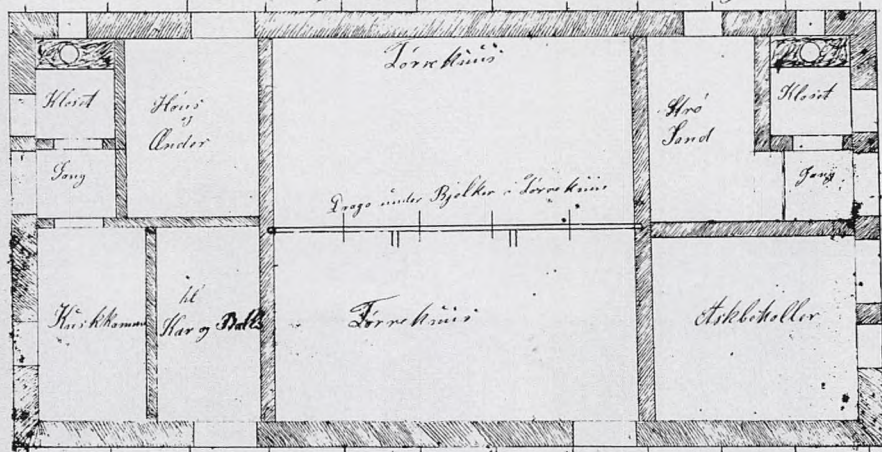 Tørrehuus
Kloset
Høns
og
Ænder
Strö
Sand
Kloset
Gang
Gang
Drage under Bjelker i Tørrehuus
Kuskkammer
til
Kar og Balle
Tørrehuus
Askbeholler